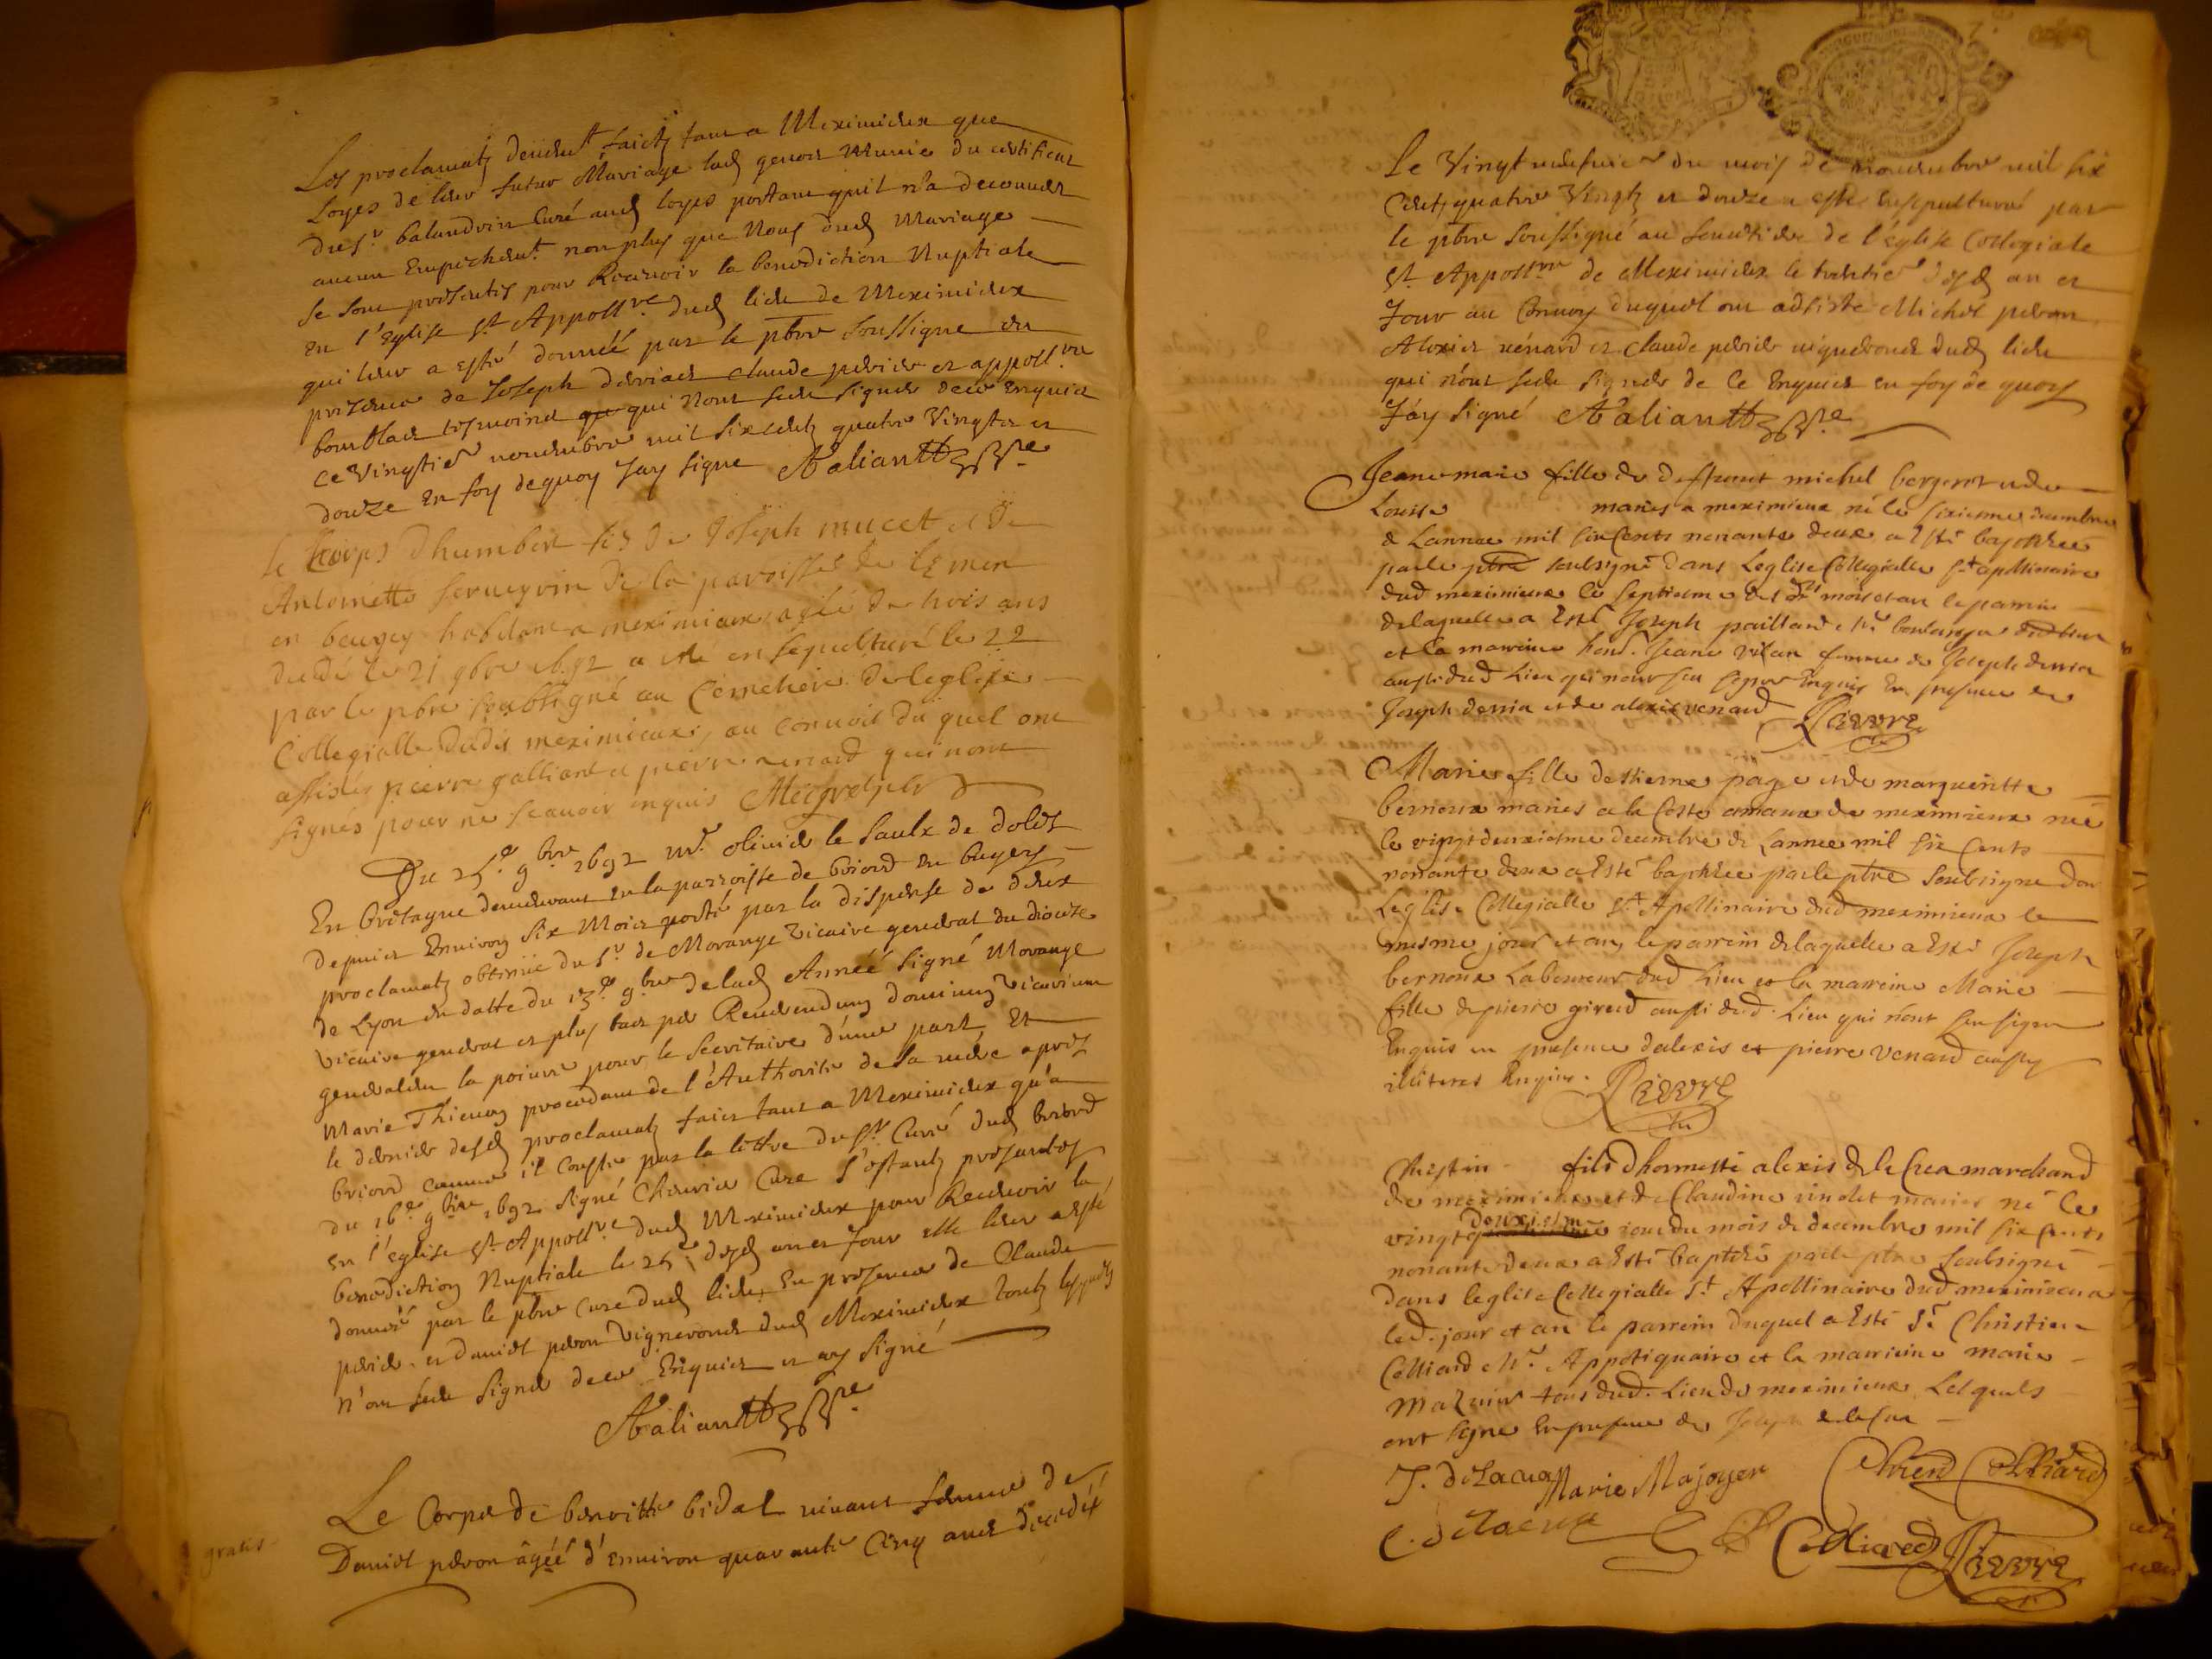 Les proclamatz deüem.t faictz tant a Meximieux que
Loyes de leur futur Mariage lad. munie du certificat
du s.r balandrin Curé aud. loyes portant qu'il n'a decouuert
aucun Empeschem.t non plus que Nous dud. Mariage
se sont presentés pour Receuoir la benediction Nuptiale
en l'Eglise S.t Appoll.re dud. lieu de Meximieux
qui leur a esté donnéé par le pbre soussigne en
presence de Joseph derriad claude perier et appoll.re
tesmoins qui n'ont sceu signer de ce Enquis
ce Vingtie novembre mil six centz quatre Vingtz et
douze En foy de quoy Jay signe
le corps dhumbert fis de Joseph mucet et de
Antoinette de la paroisse de lemen
en beugey habitant a meximieux agé de trois ans
decedé le 21 9bre 1692 a eté ensepulturé le 22
par le pbre soubsigné au Cemetiere de leglise
Collegialle dudit meximieux, au conuoit du quel ont
assistés pierre galliant et pierre renard qui n'ont
signés pour ne scauoir enquis
Du 25.e 9.bre 1692 M.r oliuier le saulx de
En bretagne demeurant en la parroisse de briord en bugey
depuis Enuiron six Mois porté par la dispense de deux
proclamatz obtenüe du s.r de Morange Vicaire general du diocese
de Lyon en datte du 13.e 9.bre de lad. Année signé Morange
Vicaire general et plus bas per Reuerendum dominum Vicarium
generalem la poiure pour le secretaire d'une part, Et
Marie Thieuon procedant de l'Authorité de sa mere apres
le dernier desd. proclamatz faict tant a Meximieux qu'a
briord comme il Conste par la lettre du s.r Curé dud. briord
du 16.e 9.bre 1692 signé Cure s'estantz presentés
en l'eglise S.t Appoll.re dud. Meximieux pour Receuoir la
benediction Nuptiale le 25.e desd. an et Jour elle leur a esté
donneé par le pbre cure dud. lieu, En presence de Claude
perier et Daniel peron Vignerons dud. Meximieux
n'ont sceu signer de ce Enquis et ay signé
Le Corps de benoitte bidal viuant femme de
gratis
Daniel peron âgéé d'enuiron quarante Cinq ans decedéé
7.
Le Vingt neufuie du mois de nouembre mil six
Centz quatre Vingtz et douze a esté Ensepulturé par
le pbre soussigné au semetiere de l'église Collegiale
S.t Appoll.re de Meximieux le trentie desd. an et
Jour au Conuoy duquel ont adsisté Michel peron
Alexis rénard et claude perier uignerons dud. lieu
qui n'ont sceu signer de ce Enquis en foy de quoy
J'ay signé
Jeanemarie fille de deffunct michel bergerot et de
Louise maries a meximieux né le sixiesme decembre
de Lannee mil six Cents nonante deux a Esté baptisee
par le ptre soubsigné dans Leglise Collegialle S.t apollinaire
dud meximieux le septiesme desd. mois et an le parrin
delaquelle a Esté Joseph paillard m.e boulanger
et la marrine hon. Jeane vilan femme de Joseph derria
aussi dud Lieu qui nont seu signer Enquis En presence de
Joseph derria et de alexis venard
Marie fille destienne page et de margueritte
bernoux maries a la Coste amaux de meximieux née
le vingt deuxiesme decembre de Lannee mil six Cents
nonante deux a Esté baptisee par le ptre Soubsigne dans
Leglise Collegialle S.t Apollinaire dud meximieux le
mesme jour et an, le parrein delaquelle a Esté Joseph
bernoux Laboureur dud Lieu et la marreine Marie
fille de pierre giroud aussi dud. Lieu qui n'ont seu signer
Enquis en presence dalexis et pierre Venard aussy
illiteres Enquis.
fils dhonneste alexis de la Crea marchand
de meximieux et de Claudine maries né le
vingt deuxiesme jour du mois de decembre mil six Cents
nonante deux a Esté baptisé par le ptre Soubsigné
dans leglise Collegialle S.t Apollinaire dud meximieux
led. jour et an le parrein duquel a Esté S.r Christien
Colliard M.e Appotiquaire et la marreine marie
tous dud. Lieu de meximieux Lesquels
ont signe En presence de Joseph
J. delacua Marie Majoyer Colliard
C. delacua Colliard